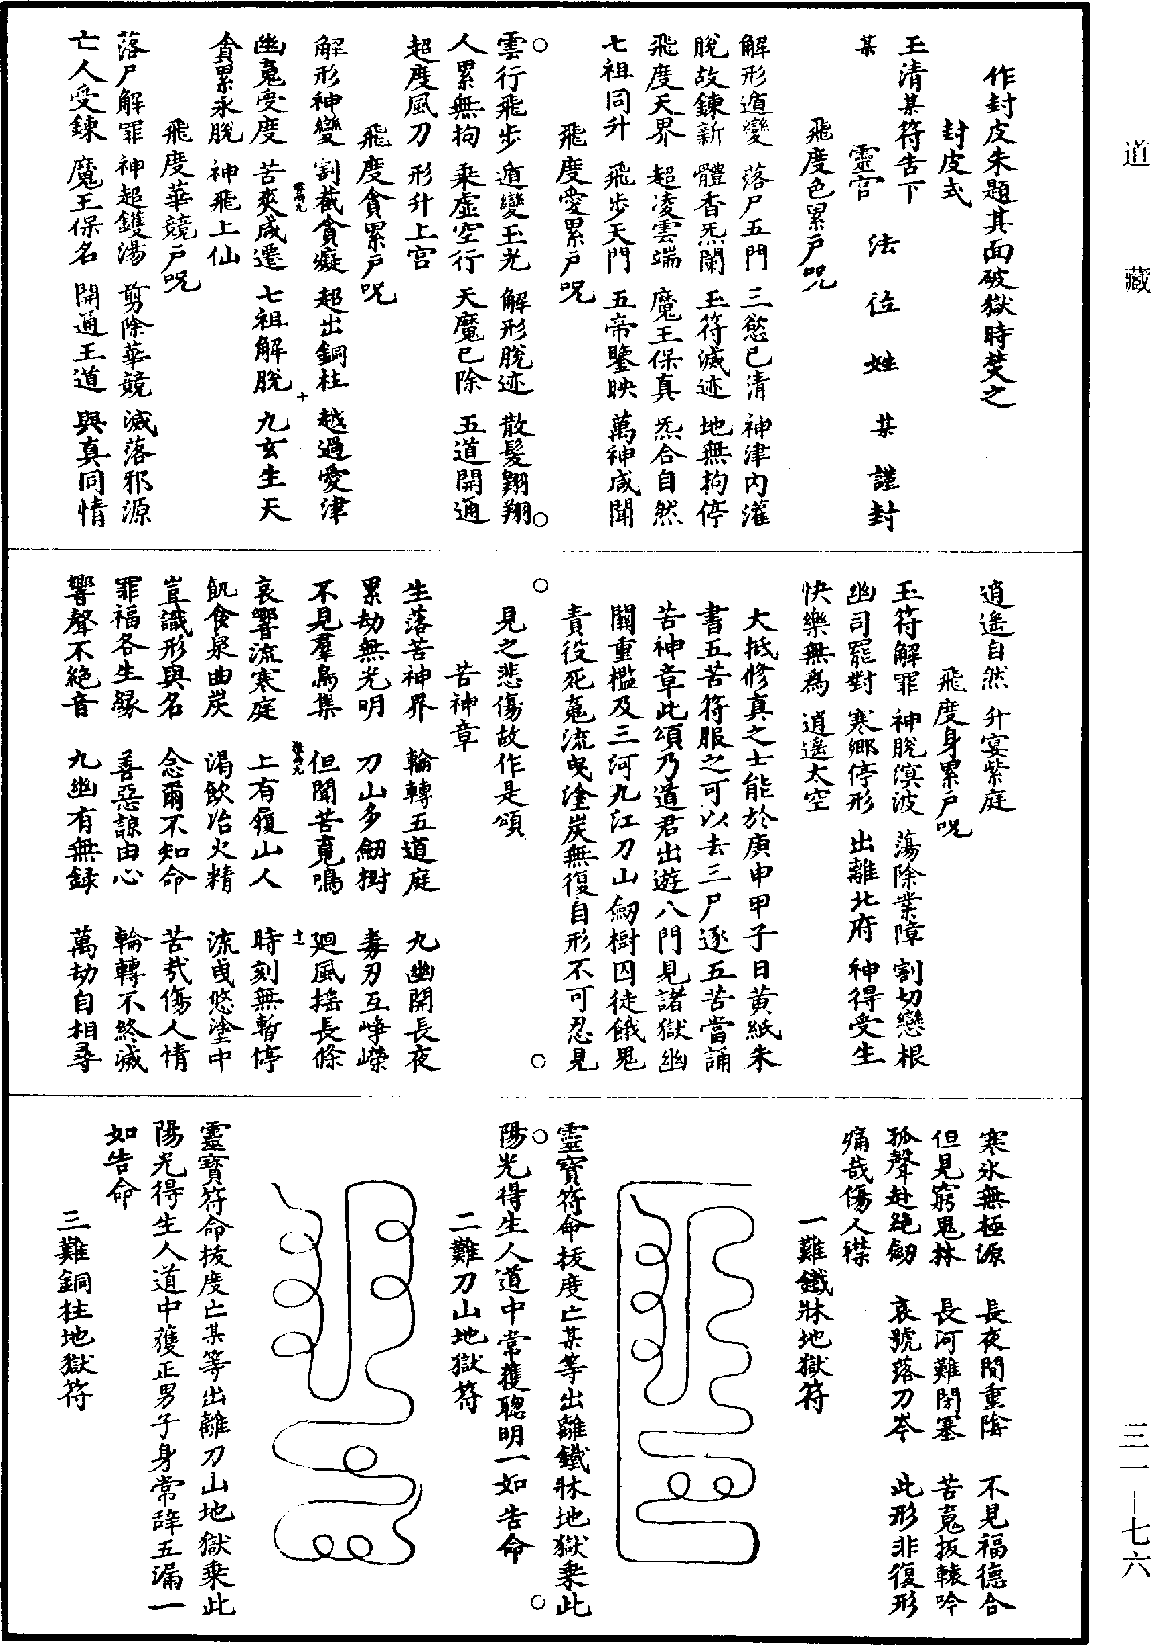 道藏
三一—七六
作封皮朱題其面破獄時焚之
封皮式
玉清某符告下
某 靈官 法位姓某謹封
飛度色累戶呪
解形遁變 落尸五門 三慾已清 神津內灌
脫故鍊新 體香炁蘭 玉符滅迹 地無拘停
飛度天界 超凌雲端 魔王保真 炁合自然
七祖同升 飛步天門 五帝鑒映 萬神咸聞
飛度愛累戶呪
雲行飛步 遁變玉光 解形脫迹 散髮翱翔
人累無拘 乘虛空行 天魔已除 五道開通
超度風刀 形升上宮
飛度貪累戶呪
解形神變 割截貪癡 超出銅柱 越過愛津
幽䰟受度 苦爽咸遷 七祖解脫 九玄生天
貪累永脫 神飛上仙
飛度華競戶呪
落尸解罪 神超鑊湯 剪除華競 滅落邪源
亡人受鍊 魔王保名 開通王道 與真同情
逍遙自然 升宴紫庭
飛度身累戶呪
玉符解罪 神脫溟波 蕩除業障 割切戀根
幽司罷對 寒鄉停形 出離北府 神得受生
快樂無為 逍遙太空
大抵修真之士能於庚申甲子日黃紙朱
書五苦符服之可以去三尸逐五苦當誦
苦神章此頌乃道君出遊八門見諸獄幽
關重檻及三河九江刀山劒樹囚徒餓鬼
責役死䰟流曳塗炭無復自形不可忍見
見之悲傷故作是頌
苦神章
生落苦神界 輪轉五道庭 九幽開長夜
累劫無光明 刀山多劒樹 毒刃互崢嶸
不見羣鳥集 但聞苦䰟鳴 廻風搖長條
哀響流寒庭 上有履山人 時刻無暫停
飢食炭曲炭 渴飲冶火精 流曳悠塗中
豈識形與名 念爾不知命 苦哉傷人情
罪福各生緣 善惡諒由心 輪轉不終滅
響聲不絕音 九幽有無錄 萬劫自相尋
寒氷無極源 長夜閒重陰 不見福德合
但見窮鬼林 長河難閉塞 苦䰟扳轅吟
孤聲赴絕劒 哀號落刀岑 此形非復形
痛哉傷人襟
一難鐵牀地獄符
靈寶符命拔度亡某等出離鐵牀地獄乘此
陽光得生人道中常獲聰明一如告命
二難刀山地獄符
靈寶符命拔度亡某等出離刀山地獄乘此
陽光得生人道中獲正男子身常辞五漏一
如告命
三難銅柱地獄符